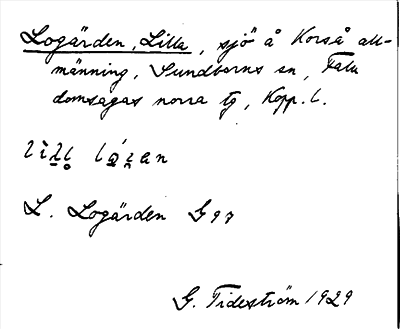 Logärden, Lilla, sjö å Korså all-
männing, Sundborns sn, Falu
domsagas norra tg, Kopp. l.
L. Logärden G97
G. Tideström 1929